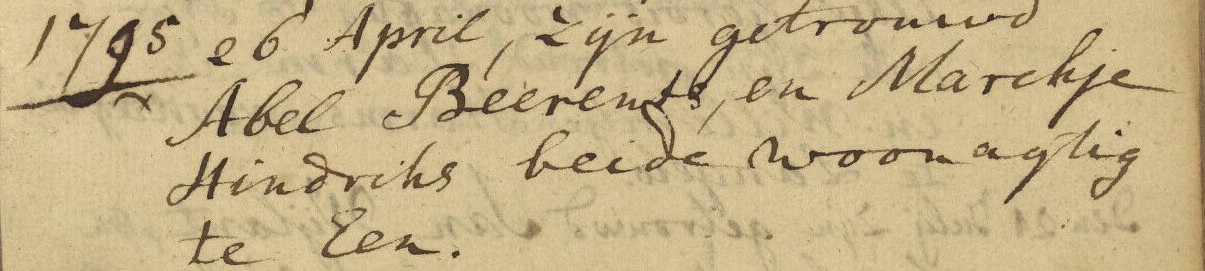 1795 26 April, zijn getrouwd
x Abel Beerents, en Marchje
Hindriks beide woonagtig
te Een.